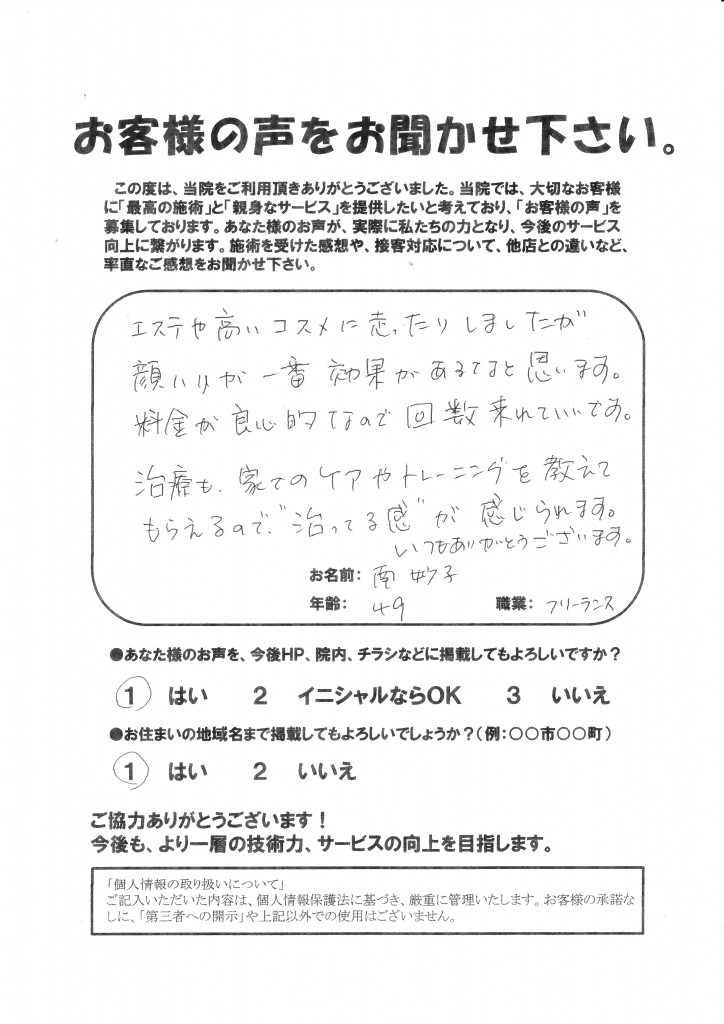 お客様の声をお聞かせ下さい。
この度は、当院をご利用頂きありがとうございました。当院では、大切なお客様
に「最高の施術」と「親身なサービス」を提供したいと考えており、「お客様の声」を
募集しております。あなた様のお声が、実際に私たちの力となり、今後のサービス
向上に繋がります。施術を受けた感想や、接客対応について、他店との違いなど、
率直なご感想をお聞かせ下さい。
エステや高いコスメに走ったりしましたが
顔ハリが一番効果があるなと思います。
料金が良心的なので回数来れていいです。
治療も、家でのケアやトレーニングを教えて
もらえるので、"治ってる感"が感じられます。
いつもありがとうございます。
お名前：南 妙子
年齢：49 職業：フリーランス
●あなた様のお声を、今後HP、院内、チラシなどに掲載してもよろしいですか？
1 はい 2 イニシャルならOK 3 いいえ
●お住まいの地域名まで掲載してもよろしいでしょうか？（例：○○市○○町）
1 はい 2 いいえ
ご協力ありがとうございます！
今後も、より一層の技術力、サービスの向上を目指します。
「個人情報の取り扱いについて」
ご記入いただいた内容は、個人情報保護法に基づき、厳重に管理いたします。お客様の承諾な
しに、「第三者への開示」や上記以外での使用はございません。